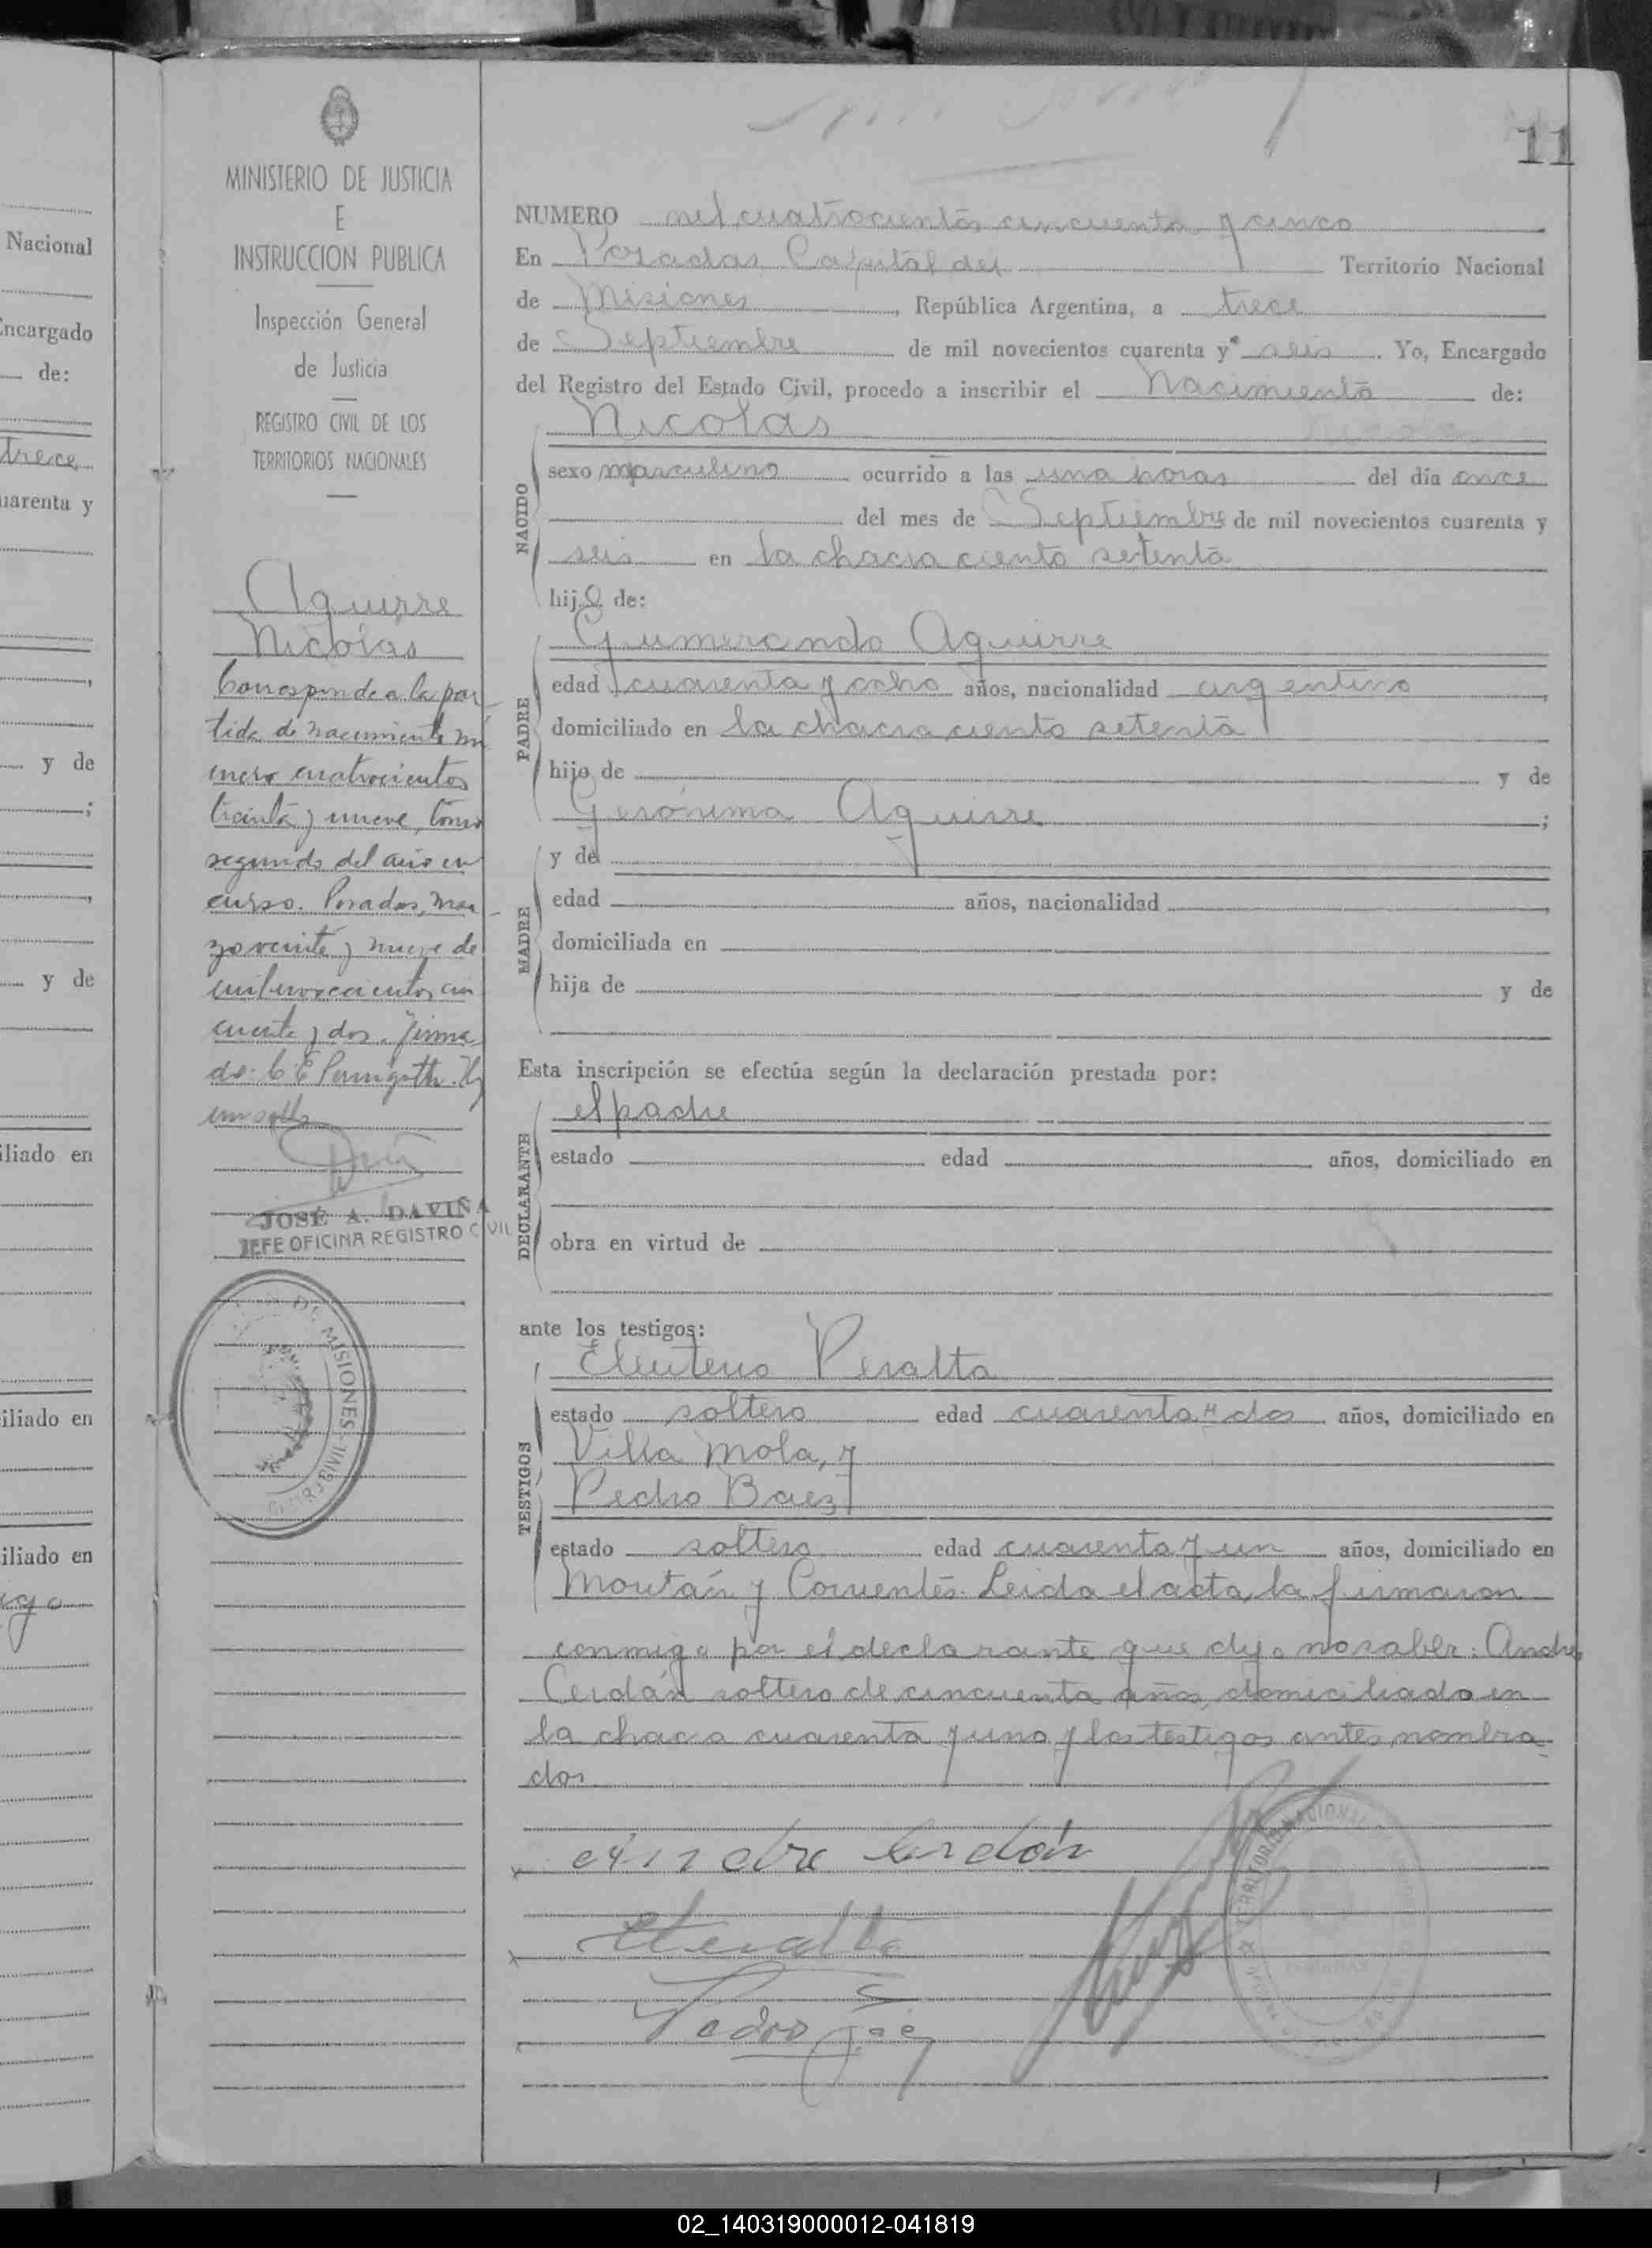 11
MINISTERIO DE JUSTICIA
E
INSTRUCCION PUBLICA
Inspección General
de Justicia
REGISTRO CIVIL DE LOS
TERRITORIOS NACIONALES
Aguirre
Nicolás
Corresponde a la par
tida de nacimiento nú
mero cuatrocientos
treinta y nueve, tomo
segundo del año en
curso. Posadas, mar
zo veinte y nueve de
mil novecientos cin
cuenta y dos. Firma
do: C. E.
un sello
JOSÉ A. DAVIÑA
JEFE OFICINA REGISTRO CIVIL
DE MISIONES
CIVIL
NUMERO mil cuatrocientos cincuenta y cinco
En Posadas Capital del Territorio Nacional
de Misiones, República Argentina, a trece
de Septiembre de mil novecientos cuarenta y seis. Yo, Encargado
del Registro del Estado Civil, procedo a inscribir el Nacimiento de:
NACIDO
Nicolás
sexo masculino ocurrido a las una horas del día once
del mes de Septiembre de mil novecientos cuarenta y
seis en la chacra ciento setenta
hijo de:
PADRE
Gumercindo Aguirre
edad cuarenta y ocho años, nacionalidad argentino,
domiciliado en la chacra ciento setenta
hijo de y de
Gerónima Aguirre;
MADRE
y de
edad años, nacionalidad,
domiciliada en
hija de y de
Esta inscripción se efectúa según la declaración prestada por:
DECLARANTE
el padre
estado edad años, domiciliado en
obra en virtud de
ante los testigos:
TESTIGOS
Eleuterio Peralta
estado soltero edad cuarenta y dos años, domiciliado en
Villa Mola, y
Pedro Baez
estado soltero edad cuarenta y un años, domiciliado en
Moután y Corrientes. Leida el acta, la firmaron
conmigo por el declarante que dijo no saber: Andre,
Cerdán soltero de cincuenta años domiciliado en
la chacra cuarenta y uno y los testigos antes nombra
dos
Andre Cerdán
EPeralta
Pedro Baez
TERRITORIO NACIONAL
POSADAS
Nacional
Encargado
de:
trece
uarenta y
,
y de
;
,
y de
iliado en
iliado en
iliado en
02_140319000012-041819